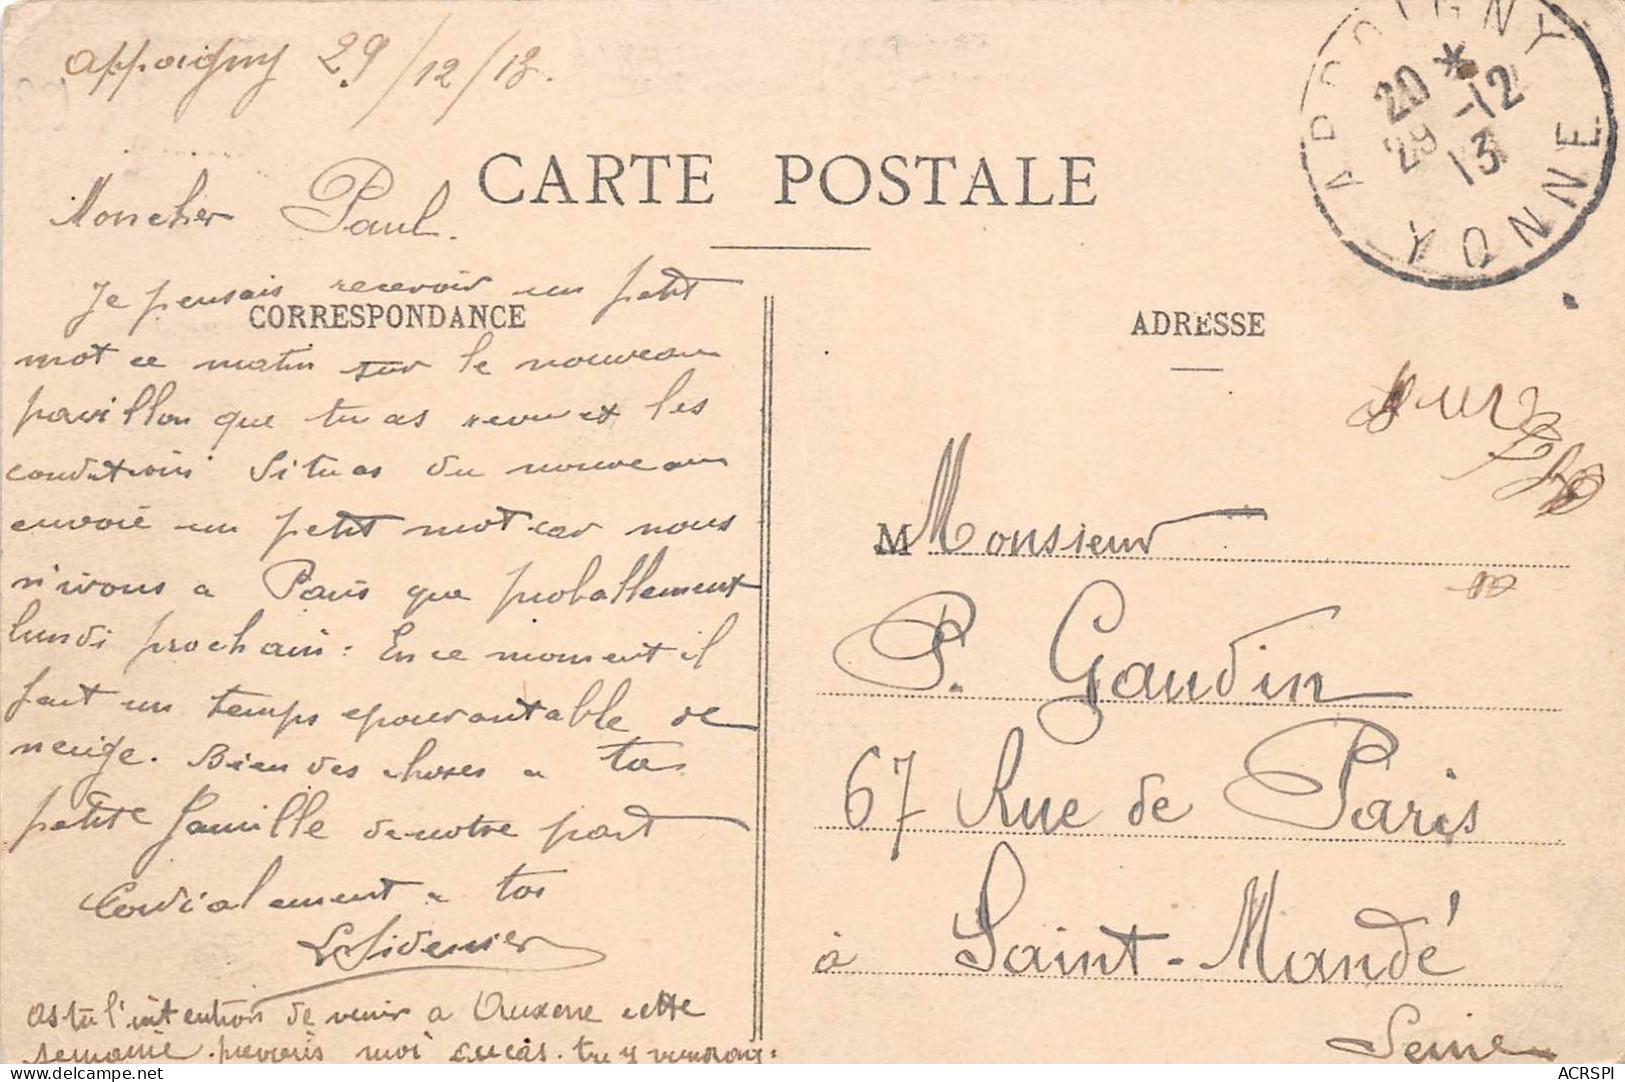 Appoigny 29/12/13.
CARTE POSTALE
APPOIGNY
20 *
29 -12
13
YONNE
Moncher Paul.
Je pensais recevoir un petit
CORRESPONDANCE
mot ce matin sur le nouveau
pavillon que tu as revu et les
conditions Si tu as du nouveau
envoie un petit mot car nous
n'irons a Paris que probablement
lundi prochain : En ce moment il
fait un temps epouvantable de
neige. Bien des choses a ta
petite famille de notre part
Cordialement a toi
as tu l'intention de venir a Auxerre cette
semaine. previens moi au cas. tu y viendrais
ADRESSE
M Monsieur
P. Gaudin
67 Rue de Paris
à Saint-Mandé
Seine
ACRSPI